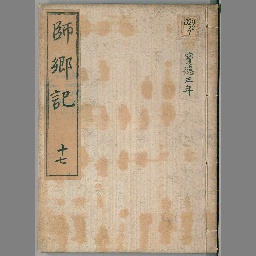 師郷記
十七
宝徳三年